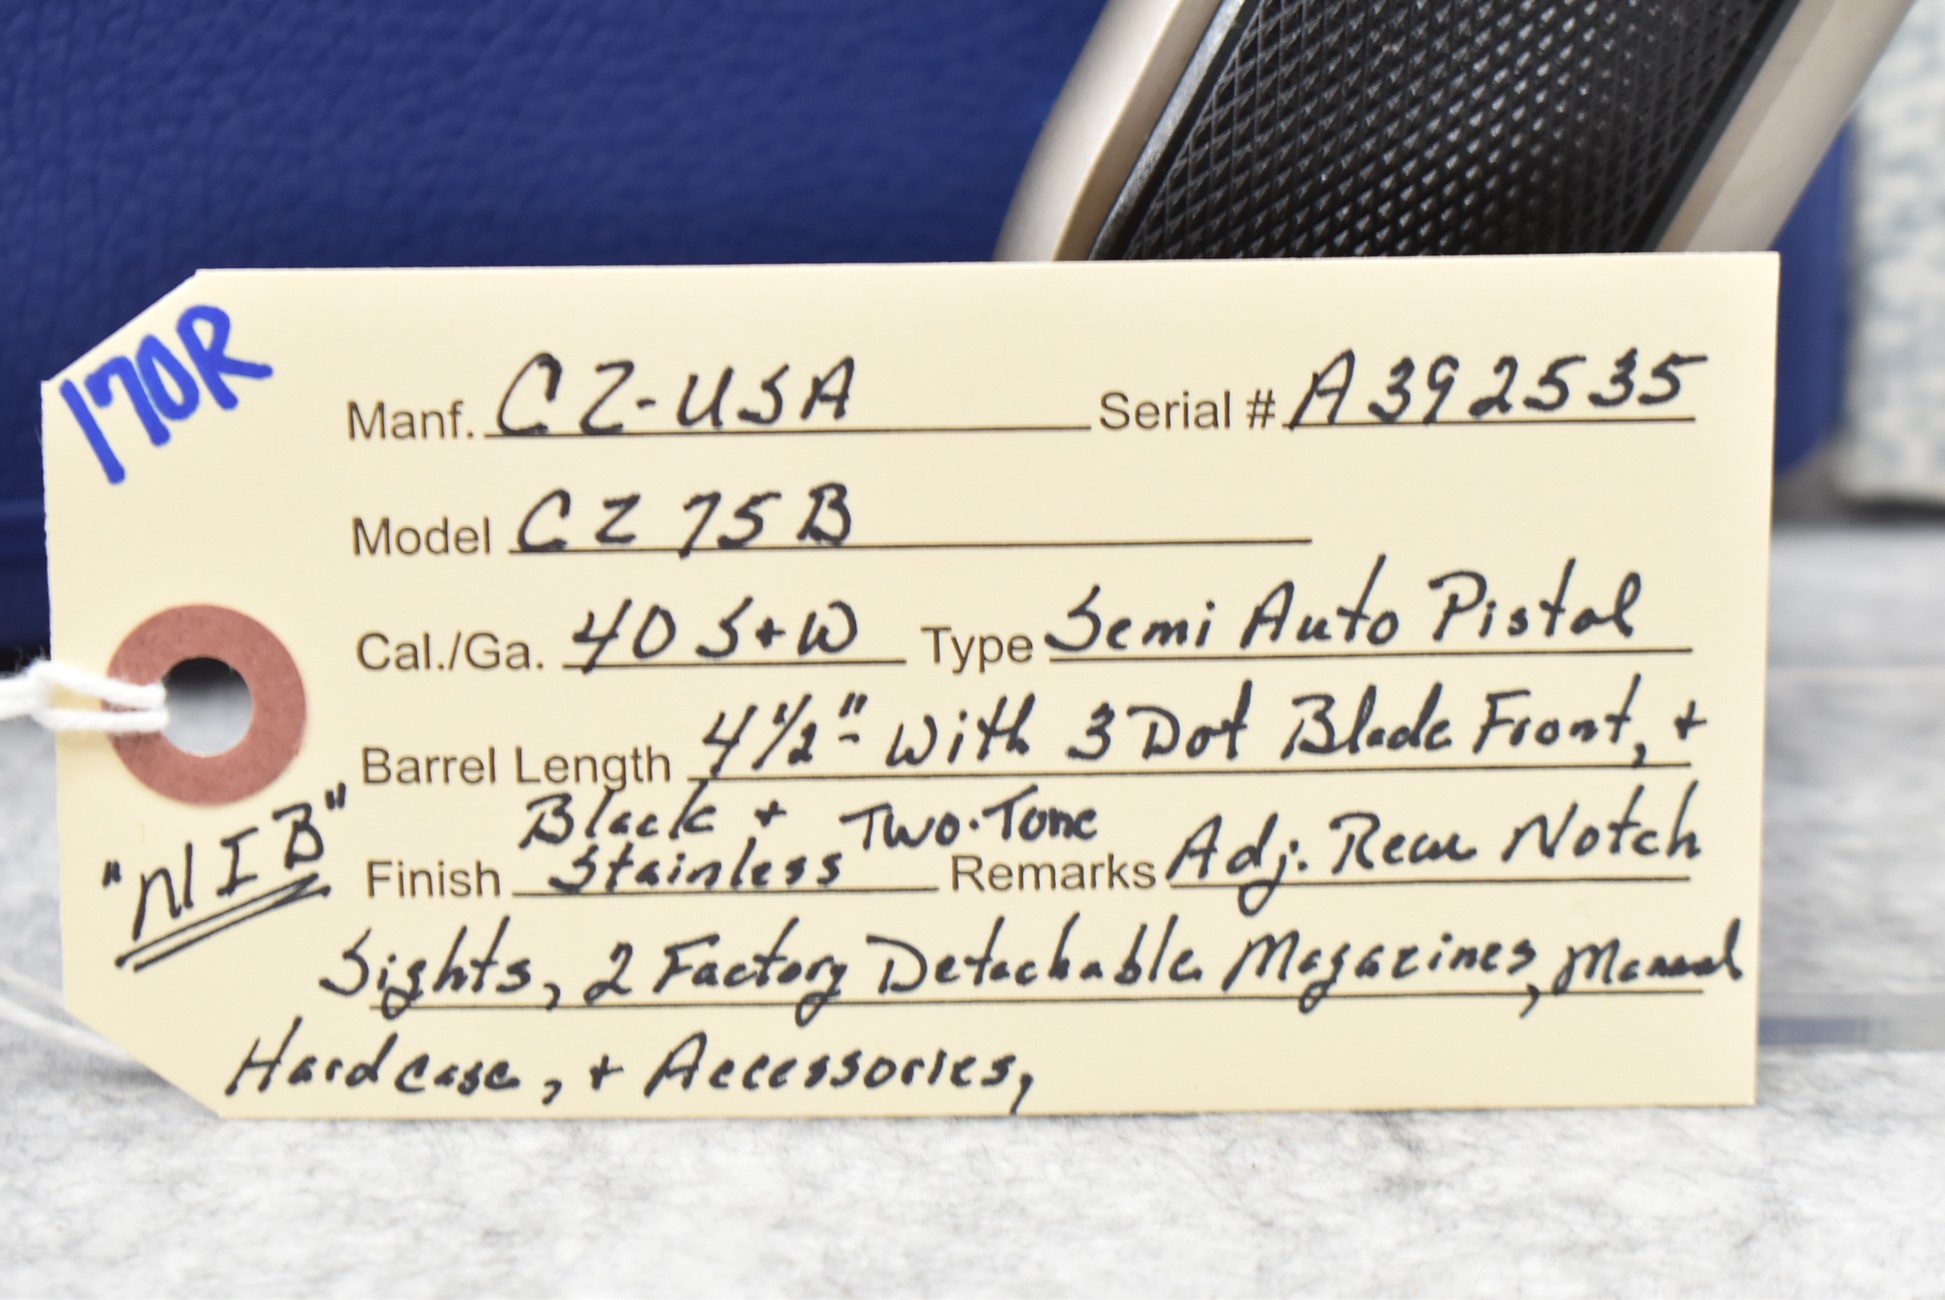 170R
Manf. CZ-USA Serial # A392535
Model CZ 75 B
Cal./Ga. 40 S+W Type Semi Auto Pistol
Barrel Length 4 1/2" With 3 Dot Blade Front, +
Black + Two-Tone
Finish Stainless Remarks Adj. Rear Notch
"NIB"
Sights, 2 Factory Detachable Magazines, Manual
Hardcase, + Accessories,